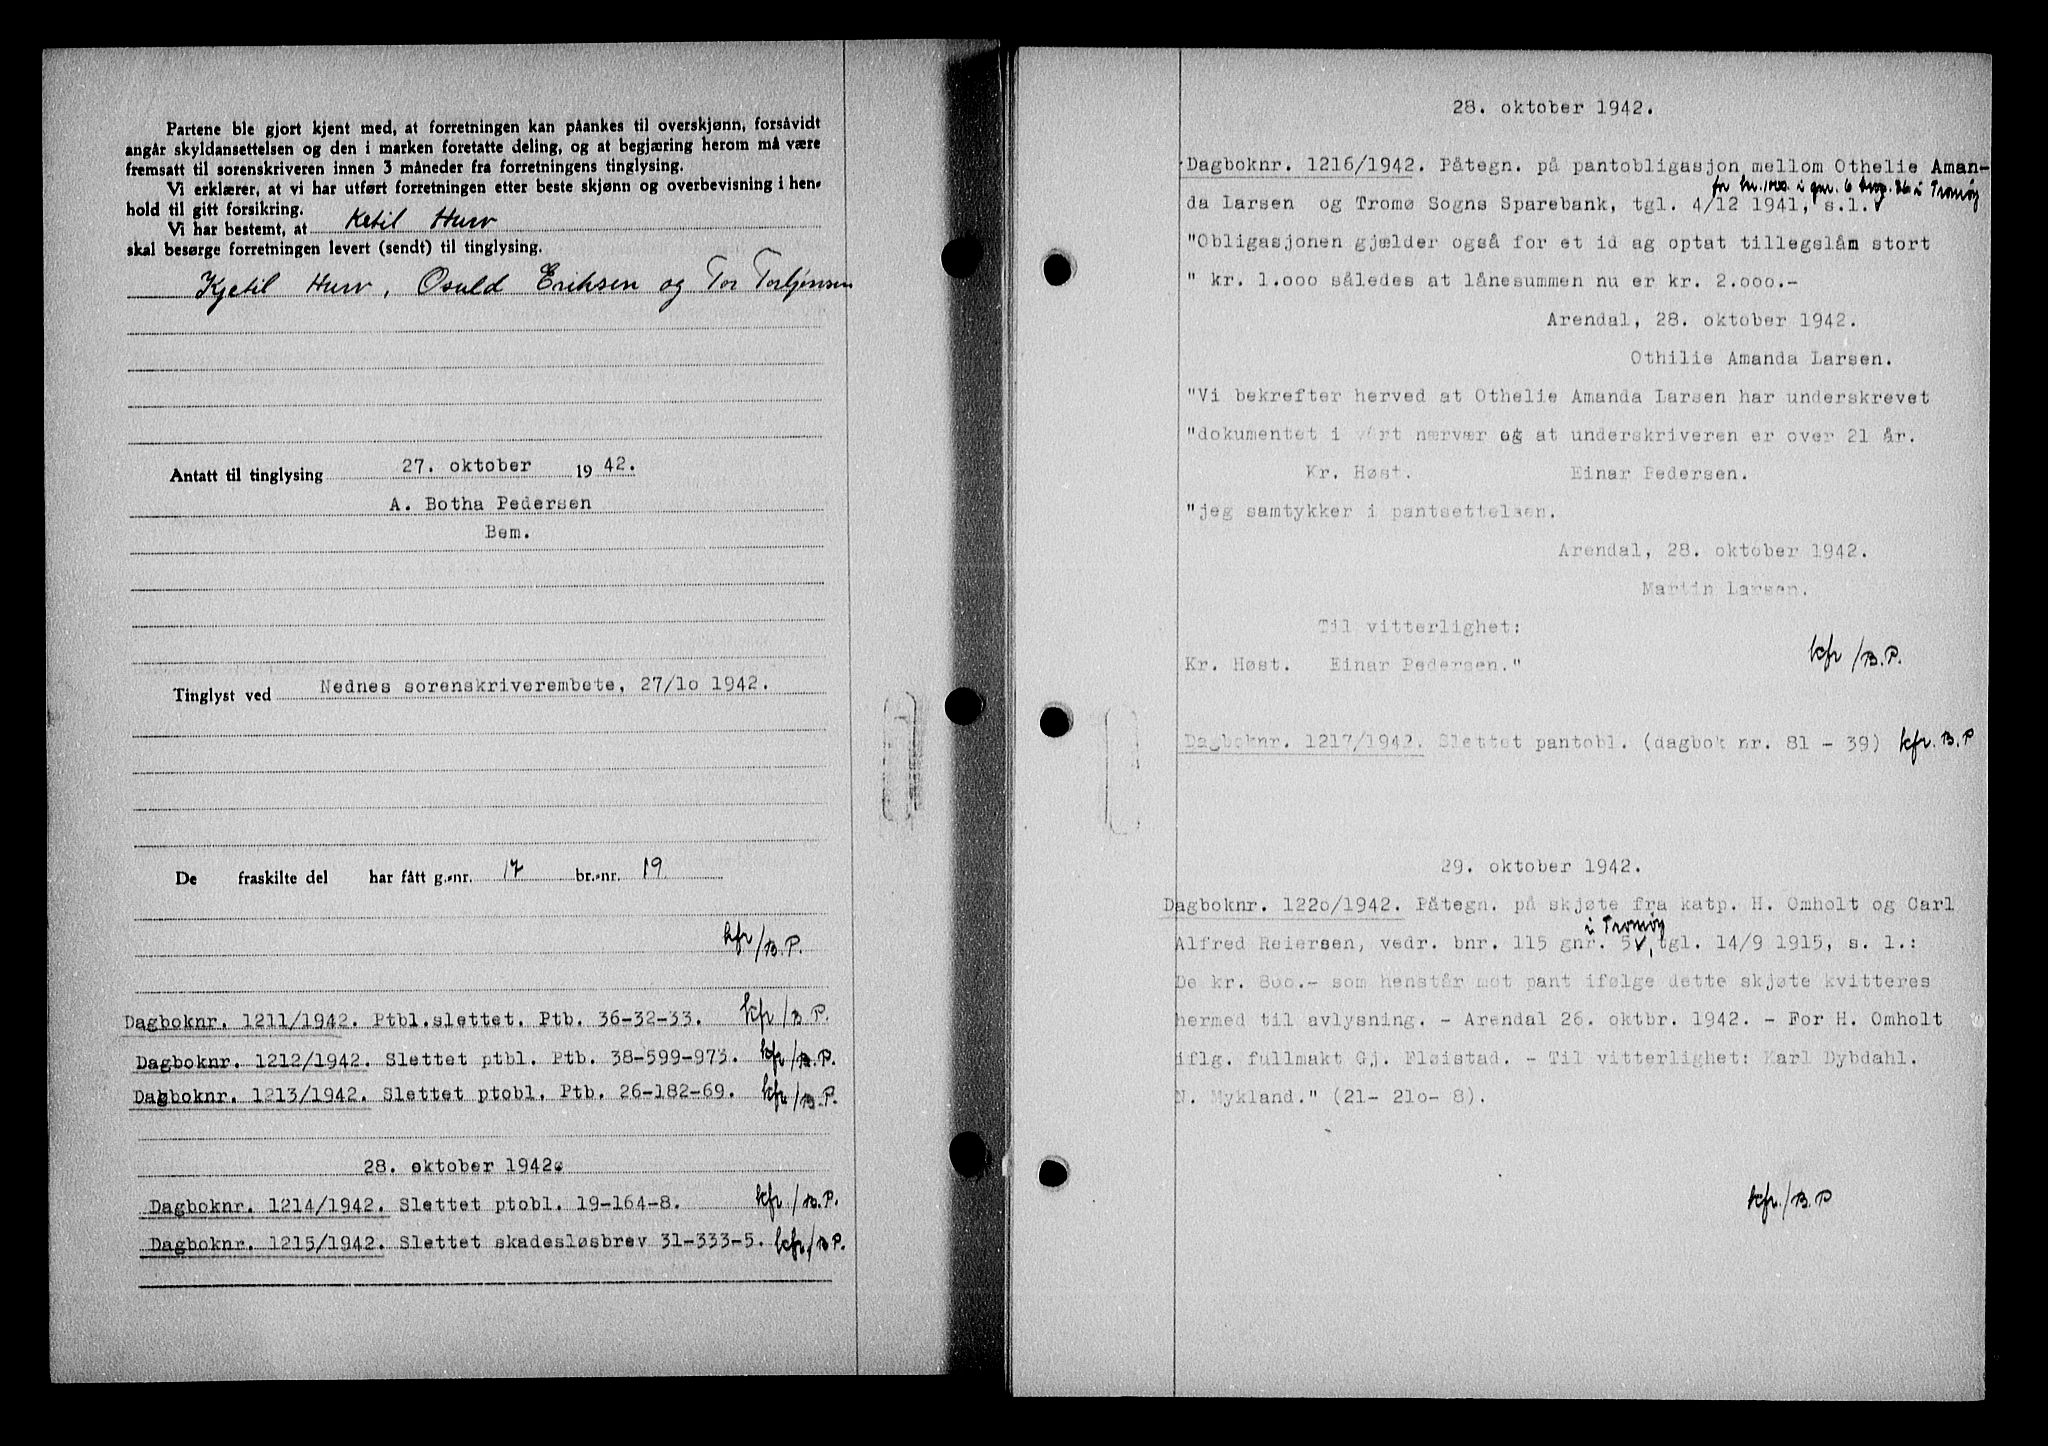 Partene ble gjort kjent med, at forretningen kan påankes til overskjønn, forsåvidt
angår skyldansettelsen og den i marken foretatte deling, og at begjæring herom må være
fremsatt til sorenskriveren innen 3 måneder fra forretningens tinglysing.
Vi erklærer, at vi har utført forretningen etter beste skjønn og overbevisning i hen-
hold til gitt forsikring.
Vi har bestemt, at Ketil Hurv
skal besørge forretningen levert (sendt) til tinglysing.
Kjetil Hurv, Osuld Eriksen og Tor Torbjørnsen
Antatt til tinglysing 27. oktober 1942.
A. Botha Pedersen
Bem.
Tinglyst ved Nednes sorenskriverembete, 27/10 1942.
De fraskilte del har fått g.-nr. 17 br.-nr. 19
kfr/B.P.
Dagboknr. 1211/1942. Ptbl.slettet. Ptb. 36-32-33. kfr/B P.
Dagboknr. 1212/1942. Slettet ptbl. Ptb. 38-599-973. kfr/B.P.
Dagboknr. 1213/1942. Slettet ptobl. Ptb. 26-182-69. kfr/B.P.
28. oktober 1942.
Dagboknr. 1214/1942. Slettet ptobl. 19-164-8. kfr/B.P.
Dagboknr. 1215/1942. Slettet skadesløsbrev 31-333-5. kfr/B P.
28. oktober 1942.
Dagboknr. 1216/1942. Påtegn. på pantobligasjon mellom Othelie Aman-
for kr. 1000. i gnr. 6 bnr. 26 i Tromøy
da Larsen og Tromø Sogns Sparebank, tgl. 4/12 1941, s.l.
"Obligasjonen gjælder også for et id ag optat tillegslåm stort
" kr. 1.000 således at lånesummen nu er kr. 2.000.-
Arendal, 28. oktober 1942.
Othilie Amanda Larsen.
"Vi bekrefter herved at Othelie Amanda Larsen har underskrevet
"dokumentet i vårt nærvær og at underskriveren er over 21 år.
Kr. Høst. Einar Pedersen.
"jeg samtykker i pantsettelsen.
Arendal, 28. oktober 1942.
Martin Larsen.
Til vitterlighet:
Kr. Høst. Einar Pedersen."
kfr/B.P.
Dagboknr. 1217/1942. Slettet pantobl. (dagbok nr. 81 - 39) kfr. B.P
29. oktober 1942.
Dagboknr. 1220/1942. Påtegn. på skjøte fra katp. H. Omholt og Carl
i Tromøy
Alfred Reiersen, vedr. bnr. 115 gnr. 5, tgl. 14/9 1915, s. l.:
De kr. 800.- som henstår mot pant ifølge dette skjøte kvitteres
hermed til avlysning. - Arendal 26. oktbr. 1942. - For H. Omholt
iflg. fullmakt Gj. Fløistad. - Til vitterlighet: Karl Dybdahl.
N. Mykland." (21- 210- 8).
kfr./B.P